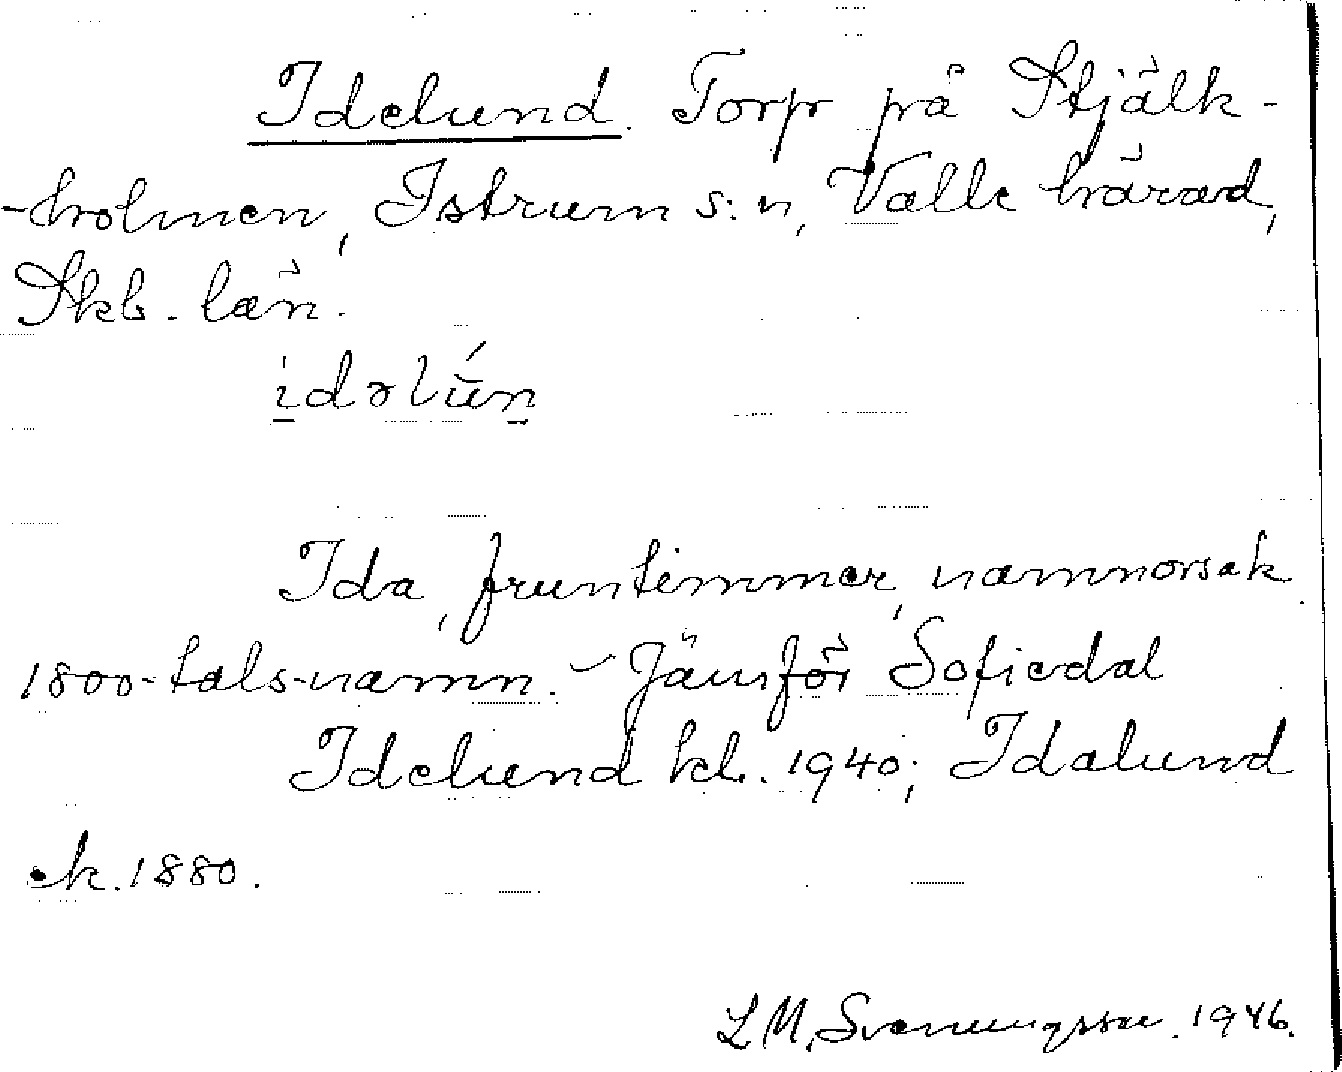 Idelund. Torp på Stjälk-
-holmen, Istrum s:n, Valle härad,
Skb. län.
idəlún
Ida, fruntimmer, namnorsak.
1800-talsnamn. - Jämför Sofiedal
Idelund kb. 1940; Idalund
ek. 1880.
L M. Svanungsson. 1946.